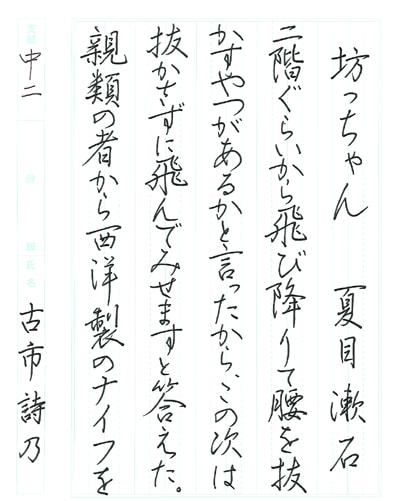 坊っちゃん 夏目漱石
二階ぐらいから飛び降りて腰を抜
かすやつがあるかと言ったから、この次は
抜かさずに飛んでみせますと答えた。
親類の者から西洋製のナイフを
中二 古市詩乃
氏名